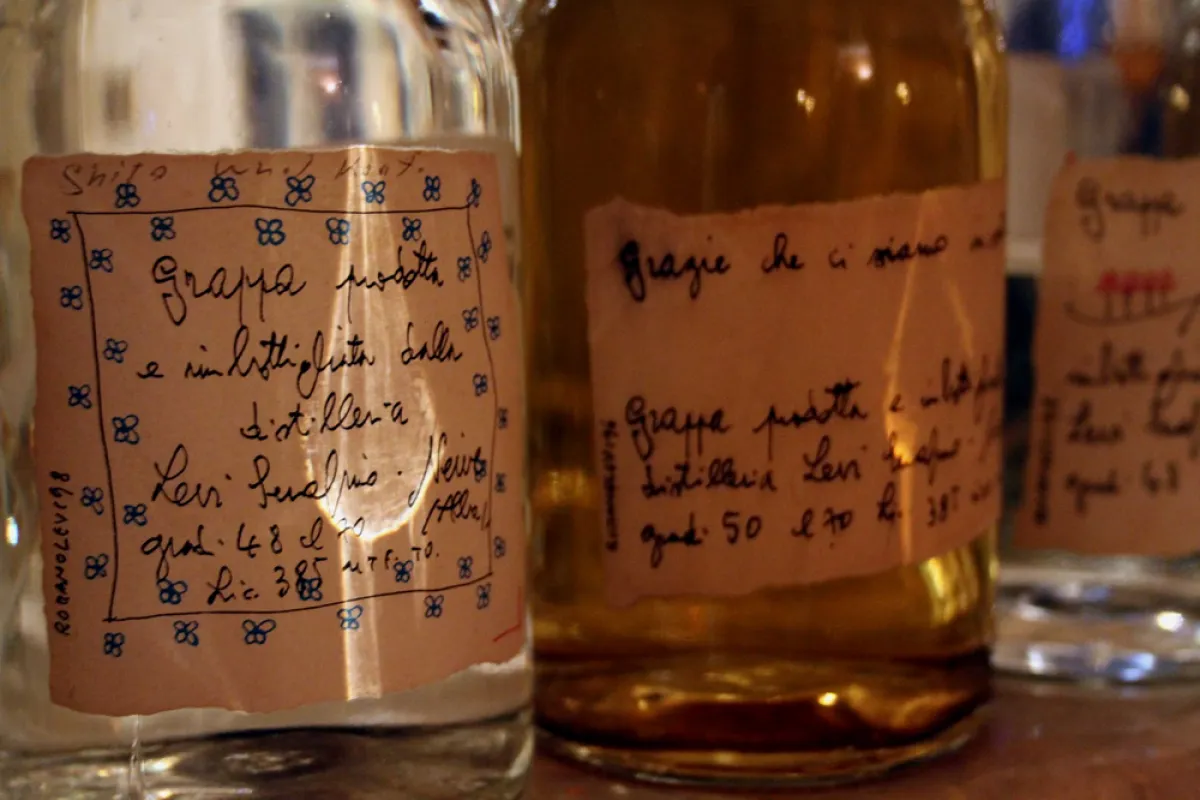 Grappa prodotta
e imbottigliata dalla
distilleria
Levi Serafino. Neive
(Alba)
grad. 48 cl 70
Lic. 385 UTF. TO.
ROMANOLEVI98
Grazie che ci siamo
Grappa prodotta e
distilleria Levi Serafino.
grad. 50 cl 70 Lic. 385
Grappa
Levi
grad. 48